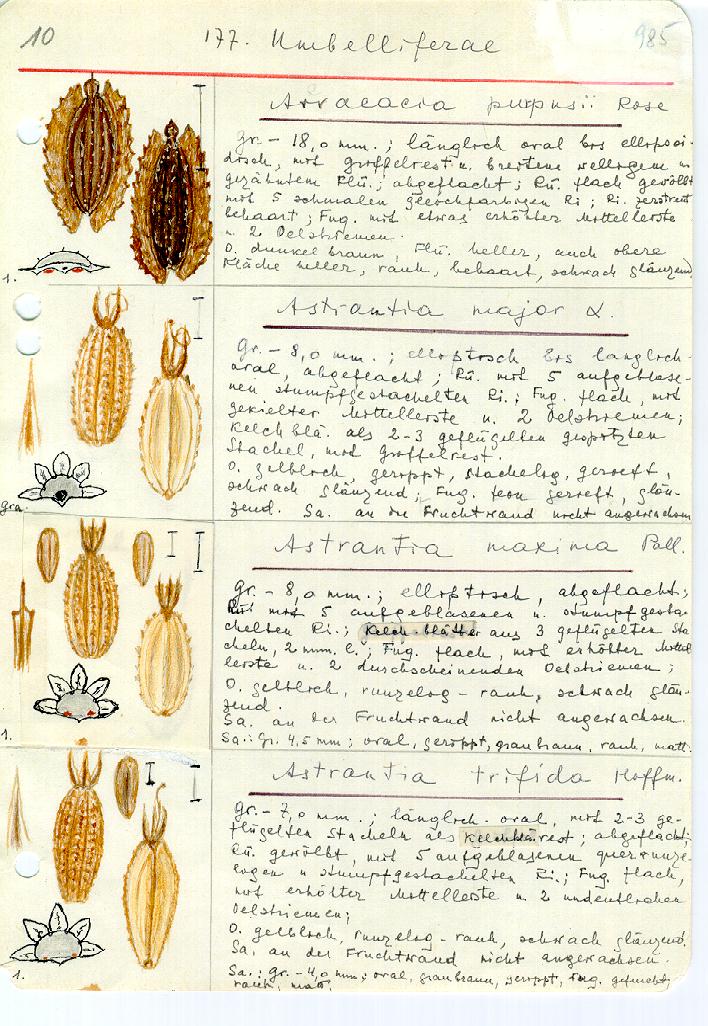 10 177. Umbelliferae 985
Arracacia purpusii Rose
Gr. - 18,0 mm.; länglich oval bis ellipsoi-
disch, mit Griffelrest u. breitem welligem u.
gezähntem Flü.; abgeflacht; Rü. flach gewölbt
mit 5 schmalen gleichfarbigen Ri; Ri. zerstreut
behaart; Fug. mit etwas erhöhter Mittelleiste
u. 2 Oelstriemen.
O. dunkelbraun, Flü. heller, auch obere
Fläche heller, rauh, behaart, schwach glänzend
1.
Astrantia major L.
Gr. - 8,0 mm.; elliptisch bis länglich-
oval, abgeflacht; Rü. mit 5 aufgeblase-
nen stumpfgestachelten Ri.; Fug. flach, mit
gekielter Mittelleiste u. 2 Oelstriemen;
Kelchblä. als 2-3 geflügelten gespitzten
Stachel, mit Griffelrest.
O. gelblich, gerippt, stachelig, gerieft,
schwach glänzend; Fug. fein gerieft, glän-
zend. Sa. an die Fruchtwand nicht angewachsen
gra.
Astrantia maxima Pall.
Gr. - 8,0 mm.; elliptisch, abgeflacht;
Rü. mit 5 aufgeblasenen u. stumpfgesta-
chelten Ri.; Kelchblätter aus 3 geflügelten Sta
cheln, 2 mm. l.; Fug. flach, mit erhöhter Mittel
leiste u. 2 durchscheinenden Oelstriemen;
O. gelblich, runzelig - rauh, schwach glän-
zend.
Sa. an der Fruchtwand nicht angewachsen.
Sa.: Gr. 4,5 mm; oval, gerippt, graubraun, rauh, matt.
1.
Astrantia trifida Hoffm.
Gr. - 7,0 mm.; länglich-oval, mit 2-3 ge-
flügelten Stacheln als Kelchblärest; abgeflacht;
Rü. gewölbt, mit 5 aufgeblasenen querrunze-
ligen u. stumpfgestachelten Ri.; Fug. flach,
mit erhöhter Mittelleiste u. 2 undeutlichen
Oelstriemen;
O. gelblich, runzelig - rauh, schwach glänzend.
Sa. an der Fruchtwand nicht angewachsen.
Sa.: Gr. - 4,0 mm; oval, graubraun, gerippt, Fug. gefurcht,
rauh, matt.
1.